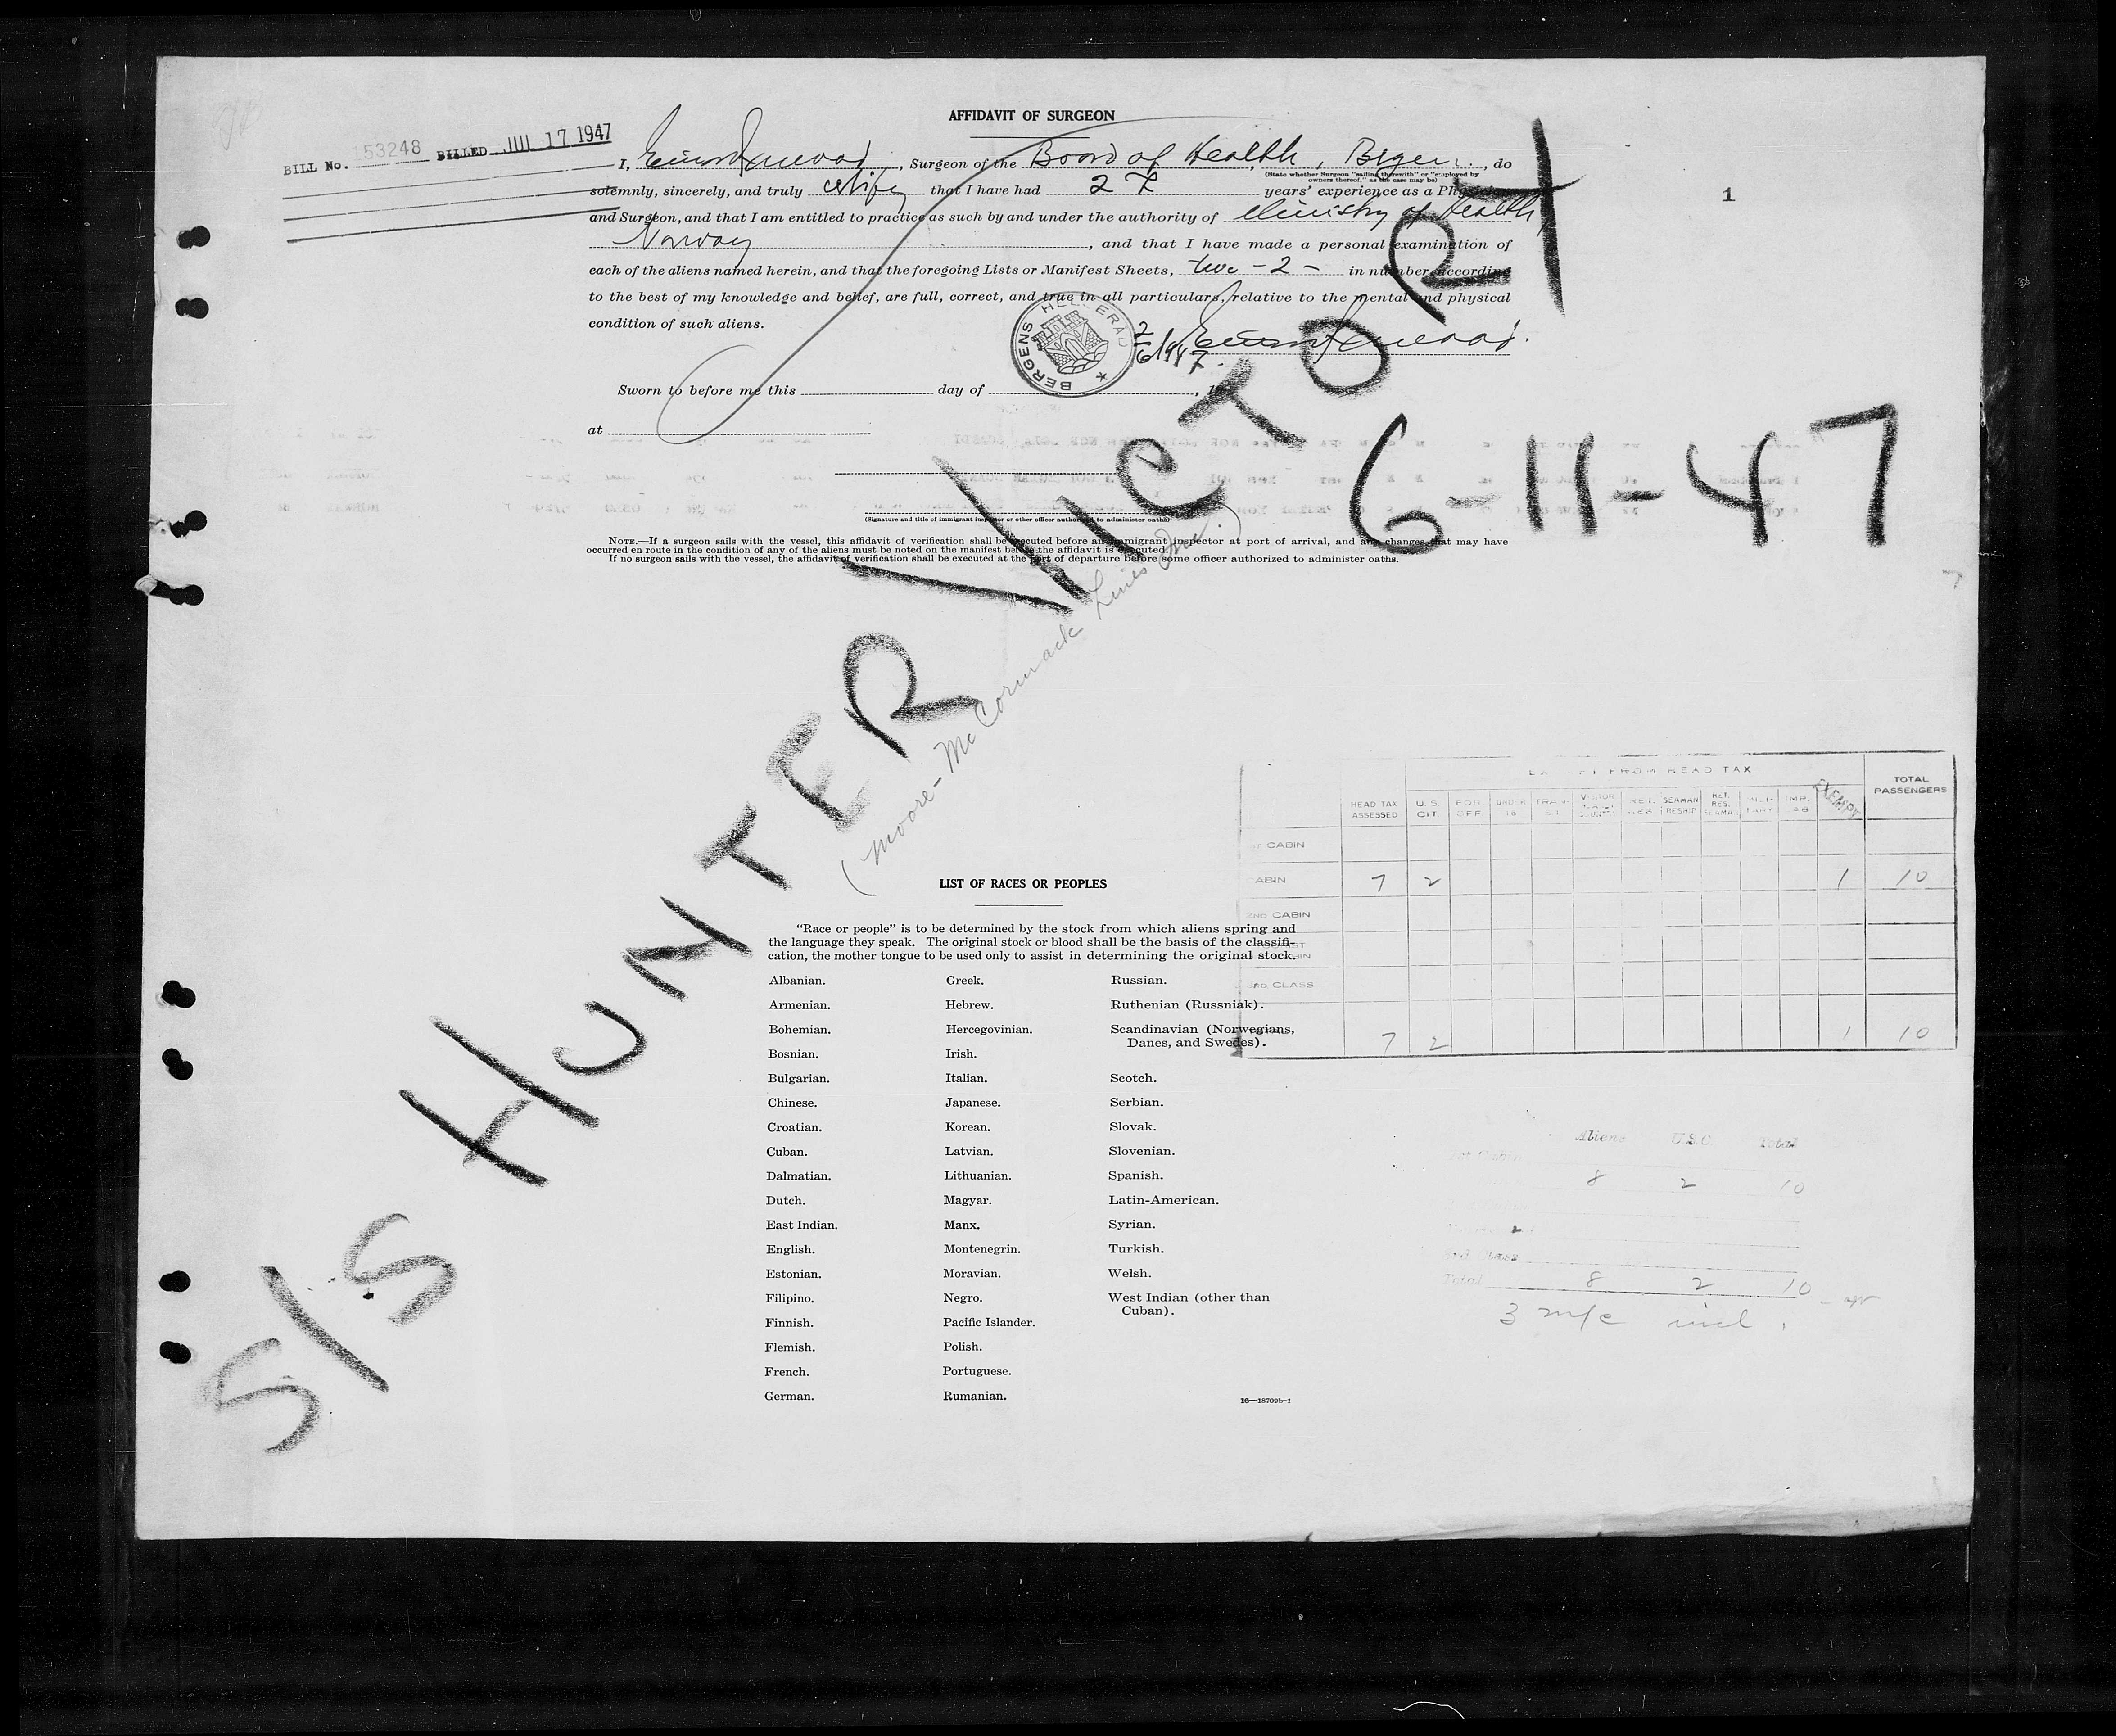 AFFIDAVIT OF SURGEON
BILL No. 153248 BILLED JUL 17 1947
I, , Surgeon of the Board of Health, Bergen, do
(State whether Surgeon "sailing therewith" or "employed by
owners thereof," as the case may be)
solemnly, sincerely, and truly certify that I have had 27 years' experience as a Physician
1
and Surgeon, and that I am entitled to practice as such by and under the authority of Ministry of Health
Norway , and that I have made a personal examination of
each of the aliens named herein, and that the foregoing Lists or Manifest Sheets, two - 2 - in number, according
to the best of my knowledge and belief, are full, correct, and true in all particulars, relative to the mental and physical
condition of such aliens.
BERGENS HELSERÅD
2/6 1947.
Sworn to before me this day of , 19
at
(Signature and title of immigrant inspector or other officer authorized to administer oaths)
NOTE.—If a surgeon sails with the vessel, this affidavit of verification shall be executed before an immigrant inspector at port of arrival, and any changes that may have
occurred en route in the condition of any of the aliens must be noted on the manifest before the affidavit is executed.
If no surgeon sails with the vessel, the affidavit of verification shall be executed at the port of departure before some officer authorized to administer oaths.
S/S HUNTER VICTORY
6-11-47
(Moore-McCormack Lines Inc.)
EXEMPT FROM HEAD TAX
HEAD TAX ASSESSED U.S. CIT. FOR. OFF. UNDER 16 SEAMAN RESHIP RET. RES. SEAMAN EXEMPT TOTAL PASSENGERS
CABIN
CABIN 7 2 1 10
2ND CABIN
3RD CLASS
7 2 1 10
LIST OF RACES OR PEOPLES
"Race or people" is to be determined by the stock from which aliens spring and
the language they speak. The original stock or blood shall be the basis of the classifi-
cation, the mother tongue to be used only to assist in determining the original stock.
Albanian.
Armenian.
Bohemian.
Bosnian.
Bulgarian.
Chinese.
Croatian.
Cuban.
Dalmatian.
Dutch.
East Indian.
English.
Estonian.
Filipino.
Finnish.
Flemish.
French.
German.
Greek.
Hebrew.
Hercegovinian.
Irish.
Italian.
Japanese.
Korean.
Latvian.
Lithuanian.
Magyar.
Manx.
Montenegrin.
Moravian.
Negro.
Pacific Islander.
Polish.
Portuguese.
Rumanian.
Russian.
Ruthenian (Russniak).
Scandinavian (Norwegians,
Danes, and Swedes).
Scotch.
Serbian.
Slovak.
Slovenian.
Spanish.
Latin-American.
Syrian.
Turkish.
Welsh.
West Indian (other than
Cuban).
16—18709b-1
Aliens U.S.C. Total
8 2 10
3rd Class
Total 8 2 10
3 m/c incl.